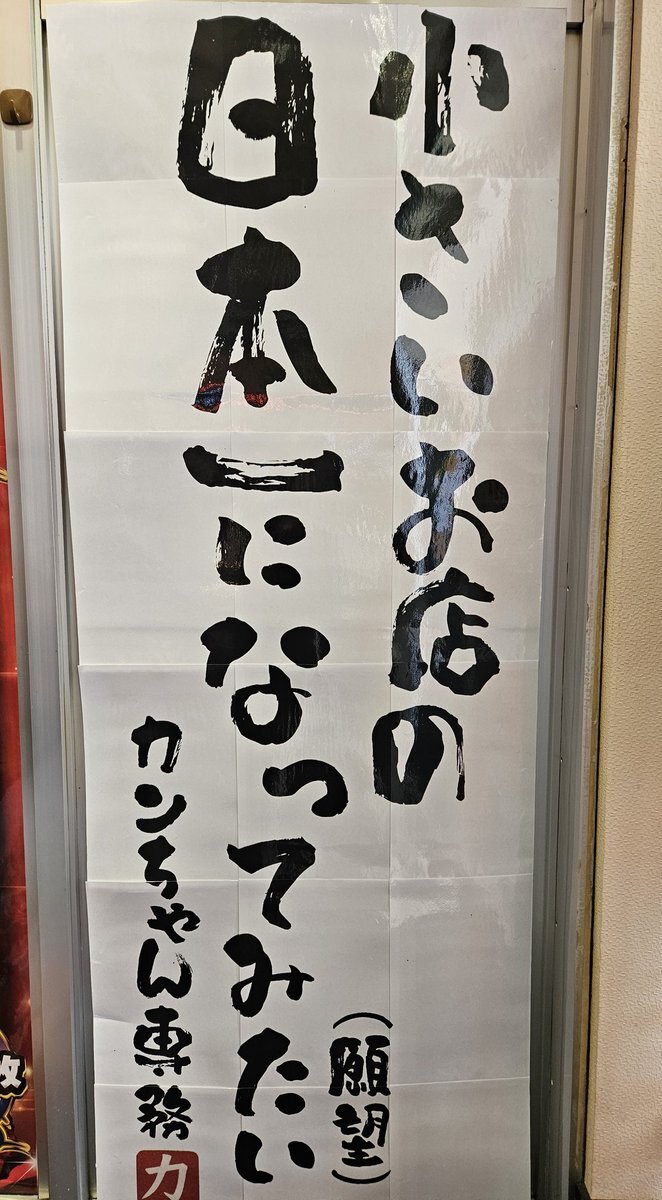 小さいお店の
日本一になってみたい
（願望）
カンちゃん専務
力